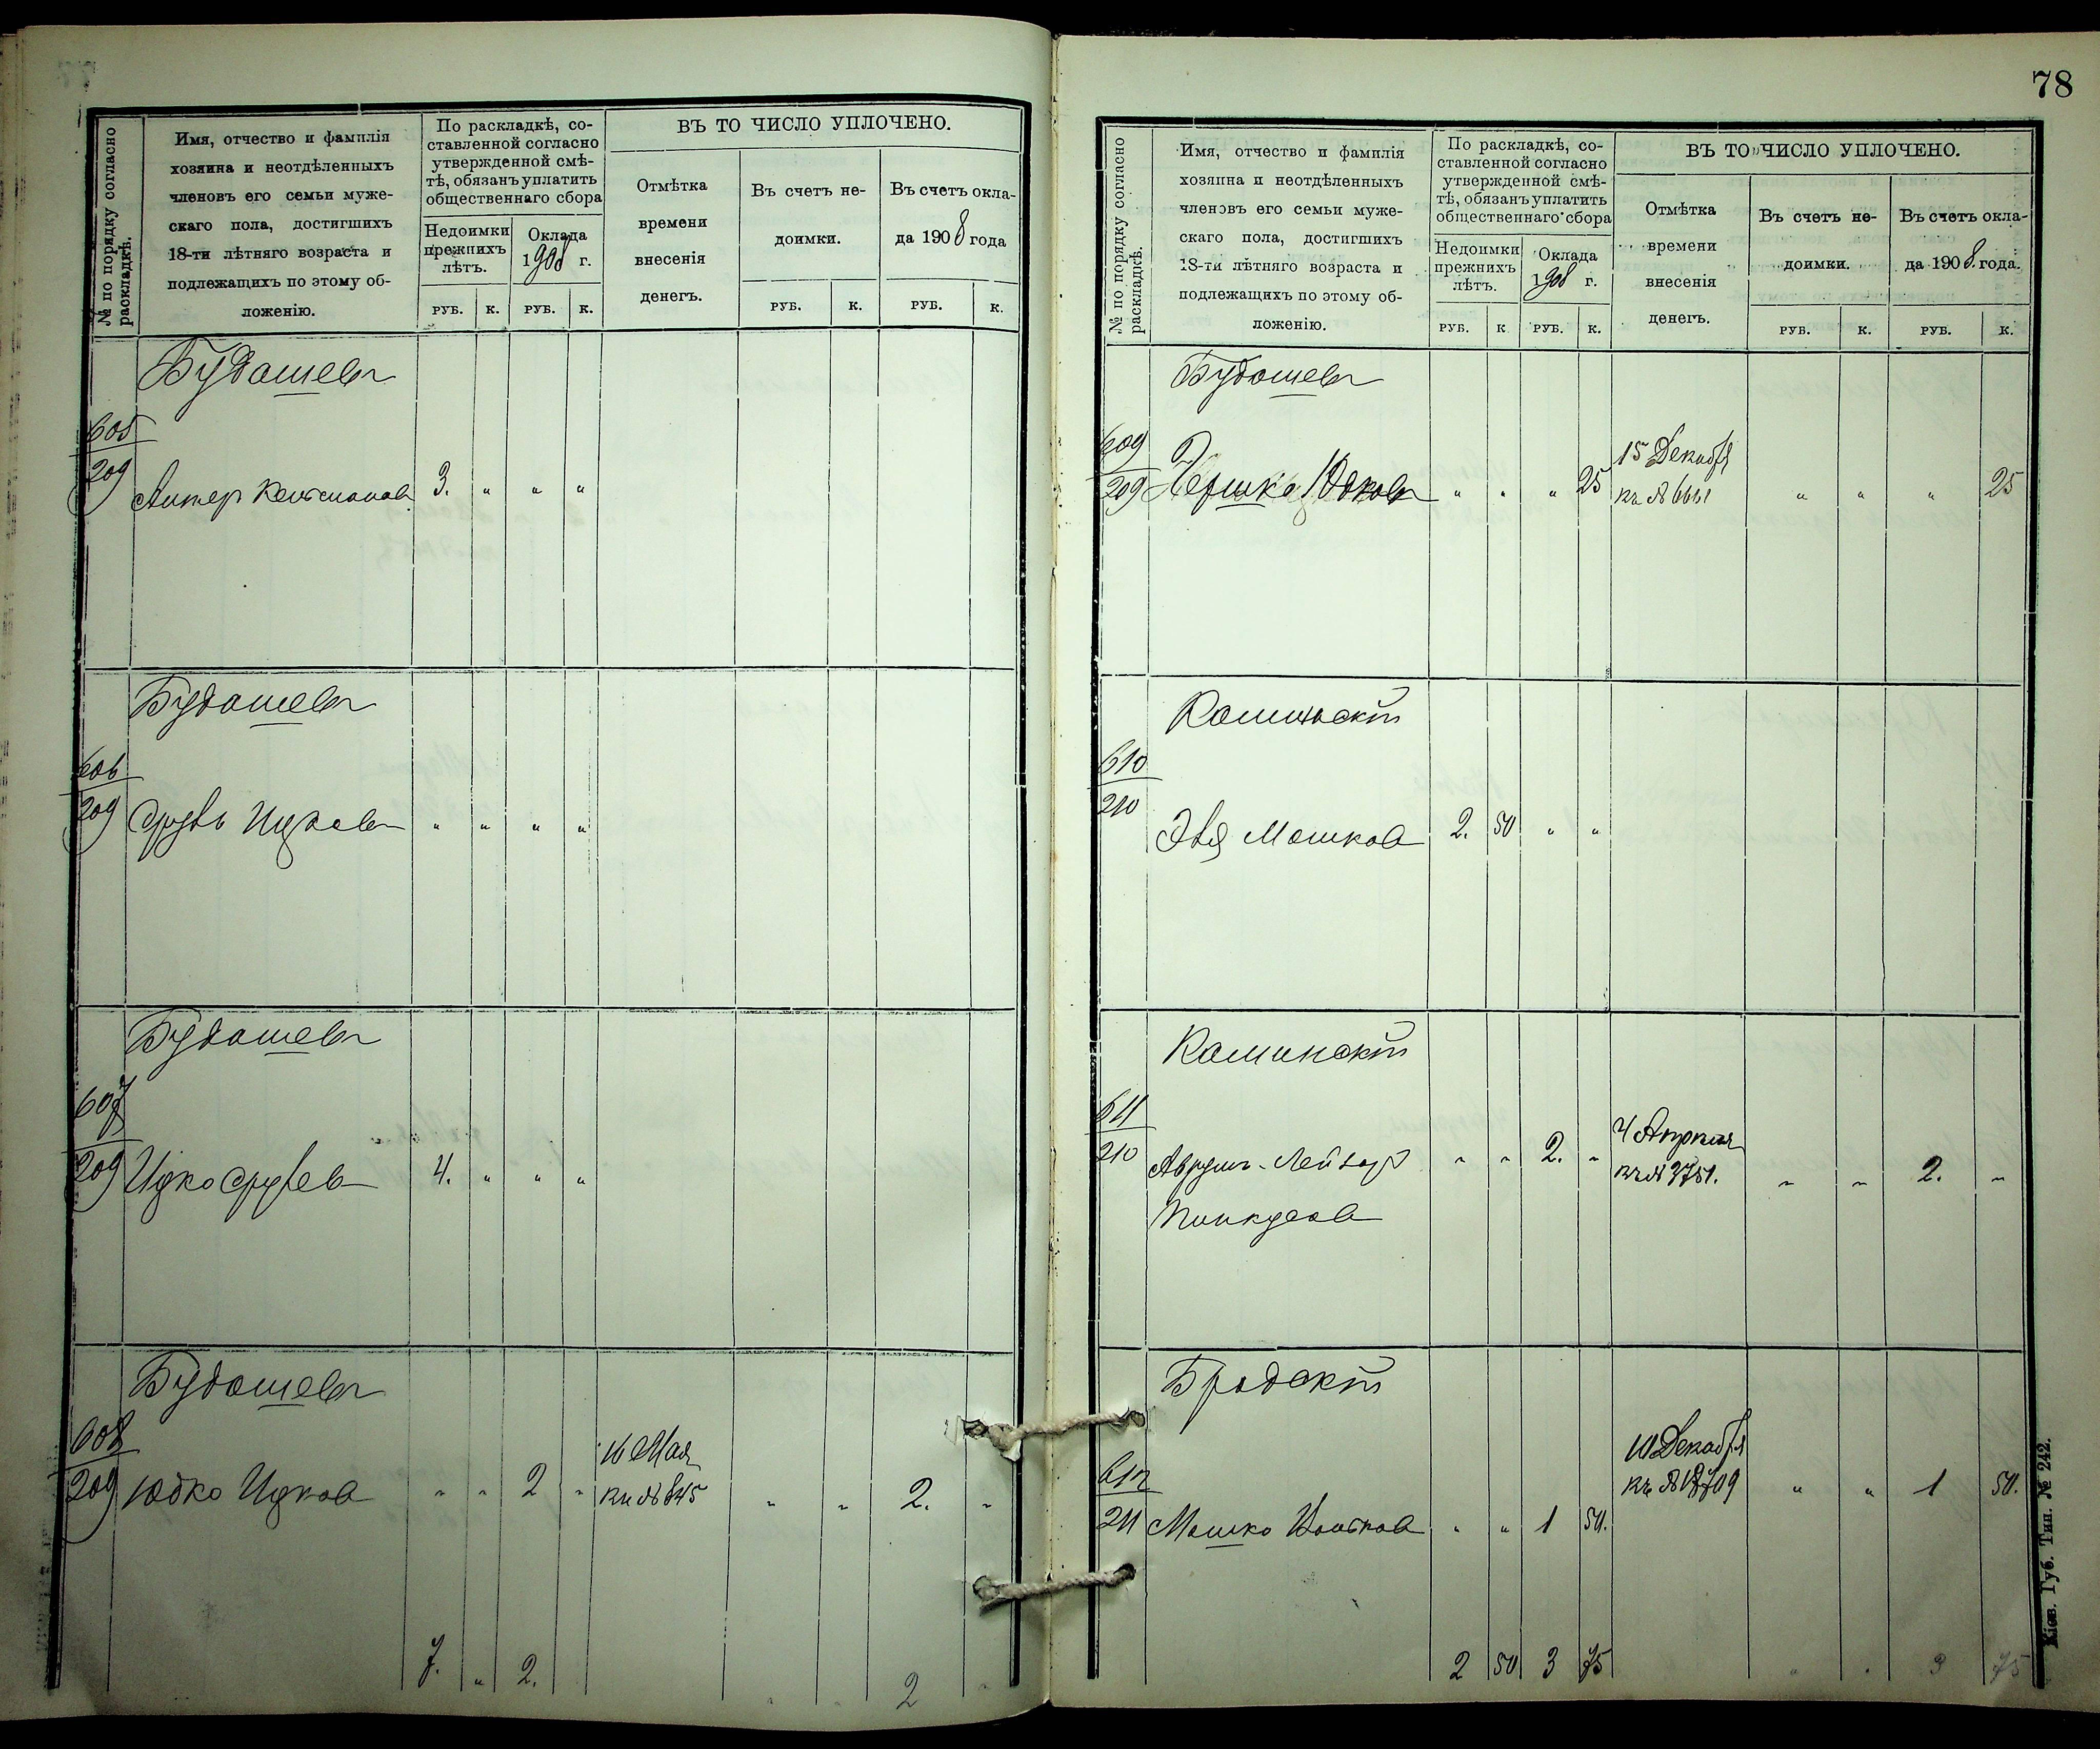 № по порядку согласно
раскладкѣ.
Имя, отчество и фамилія
хозяина и неотдѣленныхъ
членовъ его семьи муже-
скаго пола, достигшихъ
18-ти лѣтняго возраста и
подлежащихъ по этому об-
ложенію.
По раскладкѣ, со-
ставленной согласно
утвержденной смѣ-
тѣ, обязанъ уплатить
общественнаго сбора
Недоимки
прежнихъ
лѣтъ.
Оклада
1908 г.
РУБ. К. РУБ. К.
ВЪ ТО ЧИСЛО УПЛОЧЕНО.
Отмѣтка
времени
внесенія
денегъ.
Въ счетъ не-
доимки.
Въ счетъ окла-
да 1908 года
РУБ. К. РУБ. К.
Будашевъ
605
209
3. " " "
Будашевъ
606
209
Срулъ Ицковъ " " " "
Будашевъ
607
209
Ицко Срулев 4. " " "
Будашевъ
608
209
Юдко Ицков " " 2 "
16 Мая
кв № 845
" " 2. "
7. " 2.
2
78
№ по порядку согласно
раскладкѣ.
Имя, отчество и фамилія
хозяина и неотдѣленныхъ
членовъ его семьи муже-
скаго пола, достигшихъ
18-ти лѣтняго возраста и
подлежащихъ по этому об-
ложенію.
По раскладкѣ, со-
ставленной согласно
утвержденной смѣ-
тѣ, обязанъ уплатить
общественнаго сбора
Недоимки
прежнихъ
лѣтъ.
Оклада
1908 г.
РУБ. К РУБ. К.
ВЪ ТО ЧИСЛО УПЛОЧЕНО.
Отмѣтка
времени
внесенія
денегъ.
Въ счетъ не-
доимки.
Въ счетъ окла-
да 1908 года.
РУБ. К. РУБ. К.
Будашевъ
609
209
Гершко Юдковъ " " " 25
15 Декабря
" " " 25
Каминскій
610
210
Эля Мошков 2. 50 " "
Каминскій
611
210
Аврум-Лейзор
Пинкусов
" " 2. "
4 Апреля
кв № 3751.
" " 2. "
Бродскій
612
211
Мошко " " 1 50.
10 Декабря
" " 1 50.
2 50 3 75
" " 3 75
Кіев. Губ. Тип. № 242.